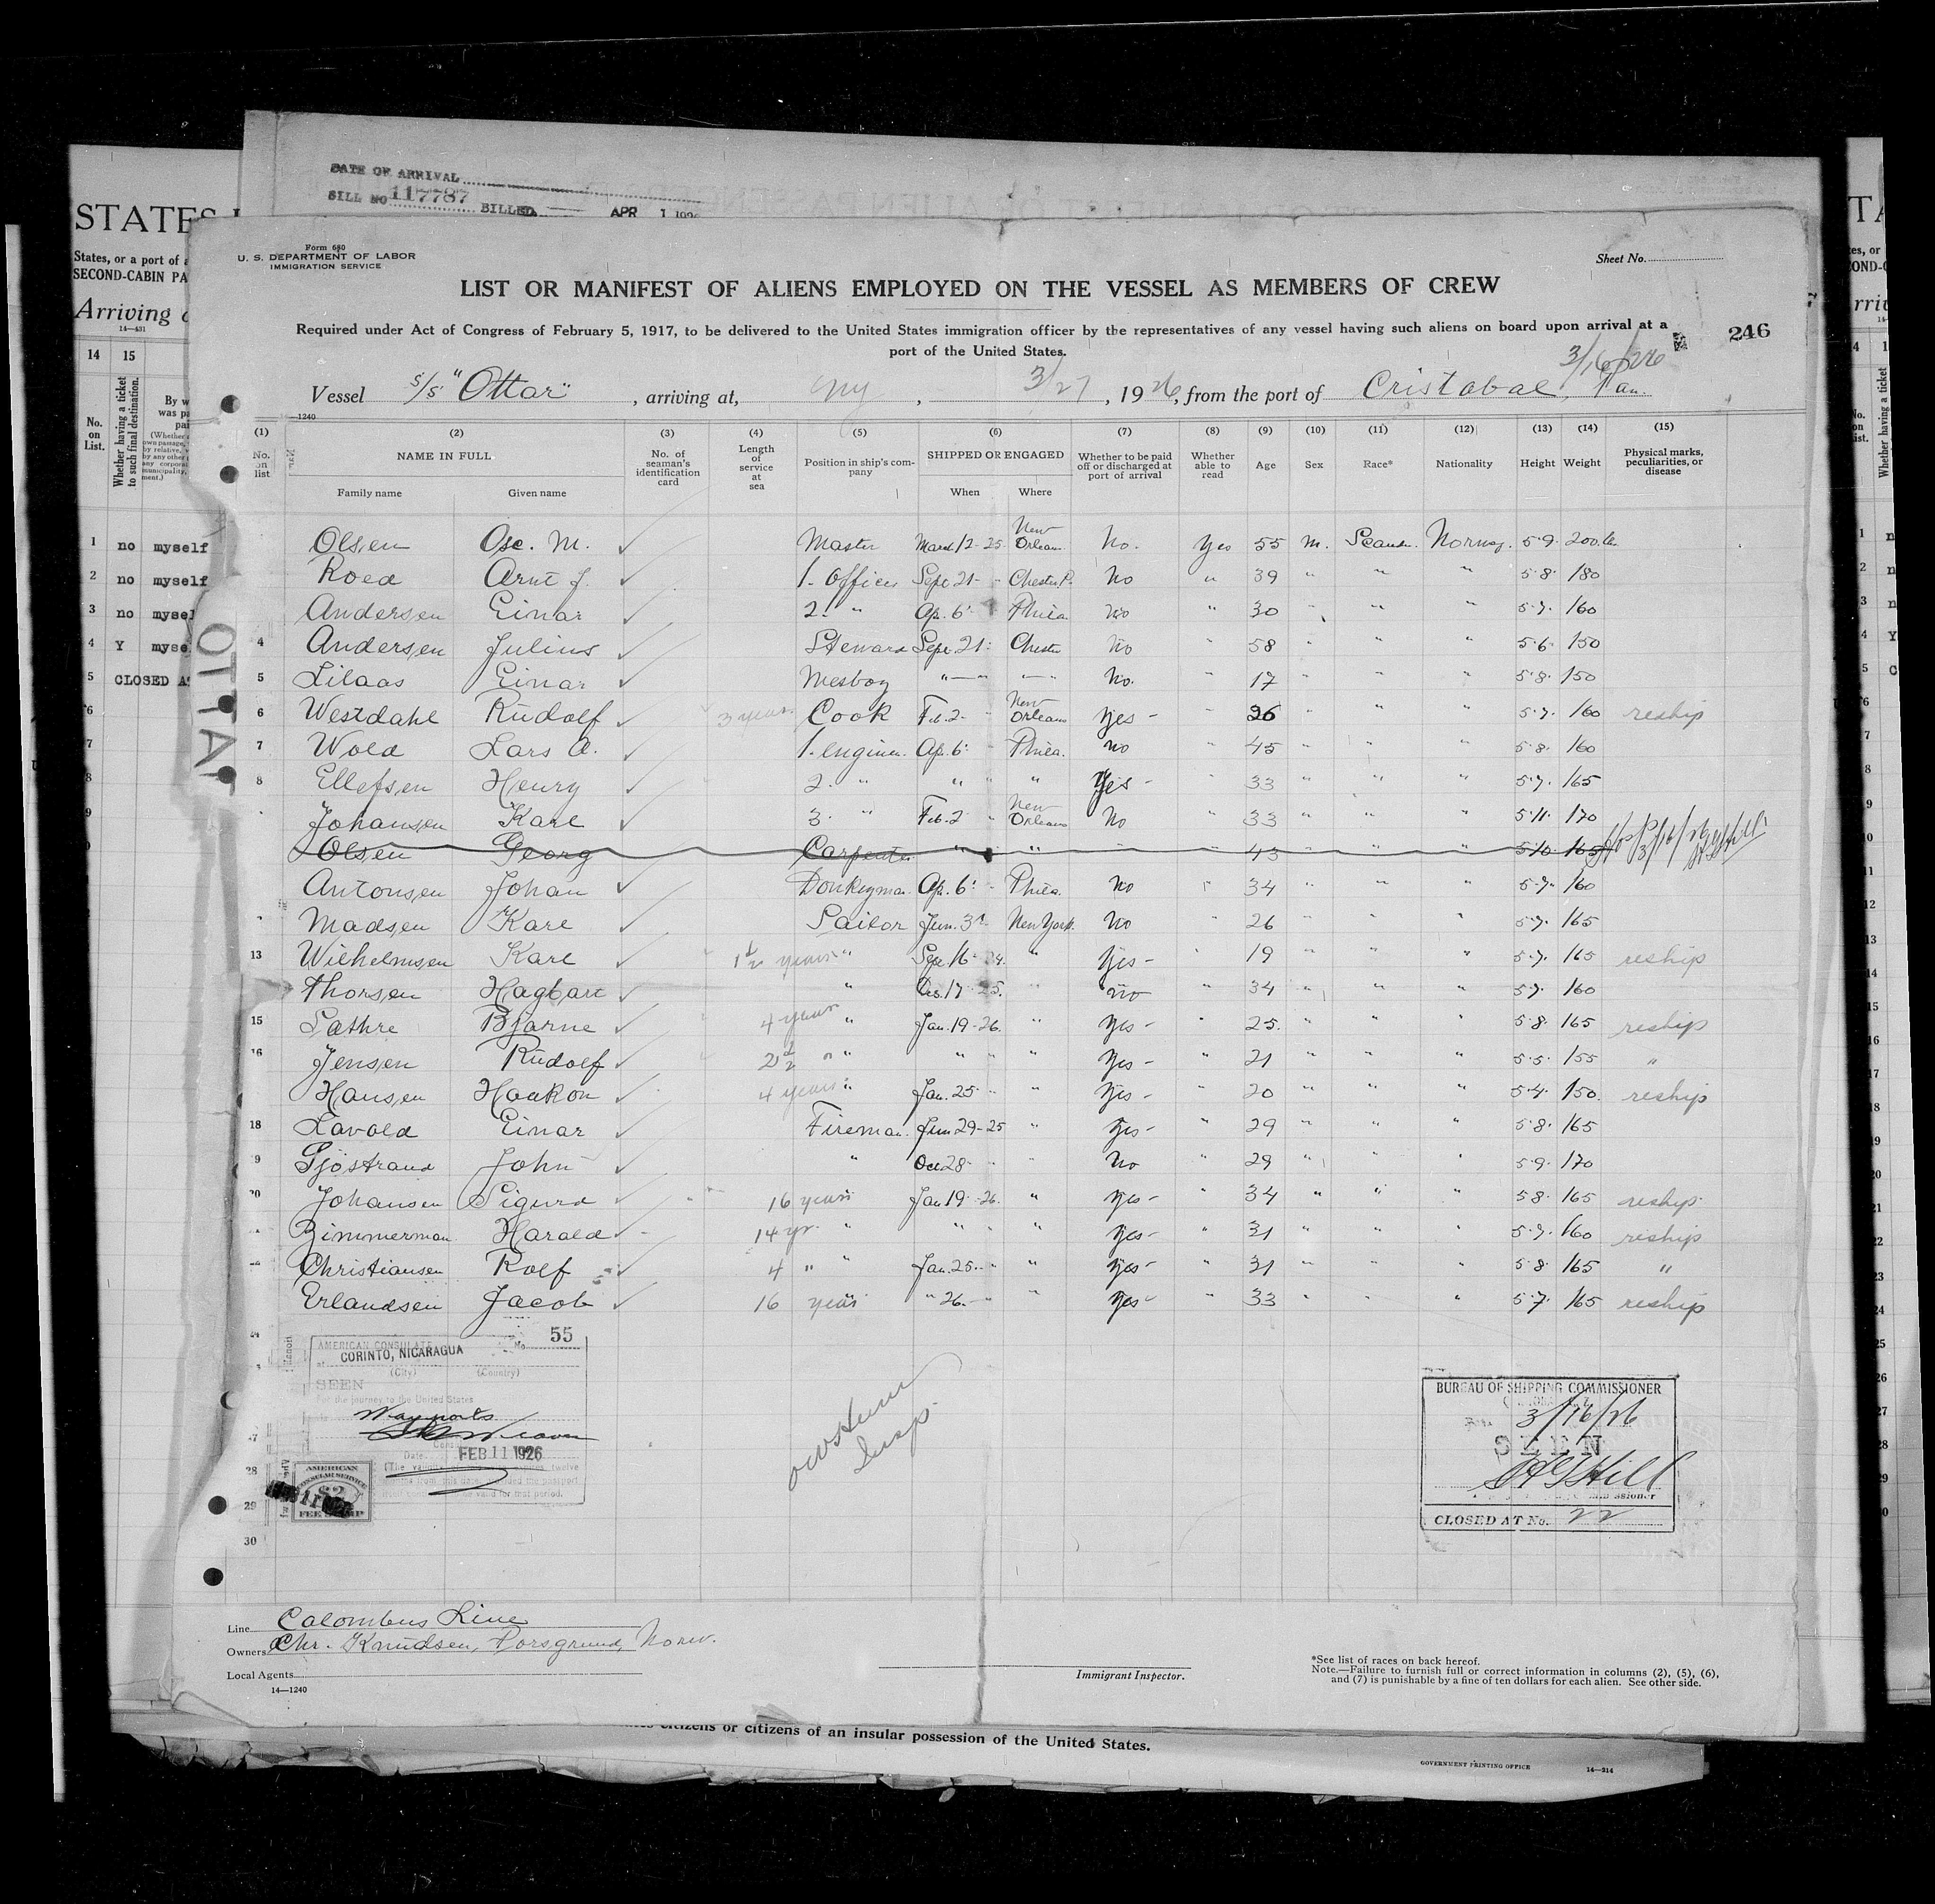 DATE OF ARRIVAL
BILL NO 117787 BILLED APR 1
STATES
States, or a port of
SECOND-CABIN PA
Arriving
14—431
14 15
No. on List.
Whether having a ticket to such final destination.
1 no myself
2 no myself
3 no mysel
4 Y myse
5 CLOSED A
OTTAR
Form 680
U. S. DEPARTMENT OF LABOR
IMMIGRATION SERVICE
Sheet No.
LIST OR MANIFEST OF ALIENS EMPLOYED ON THE VESSEL AS MEMBERS OF CREW
Required under Act of Congress of February 5, 1917, to be delivered to the United States immigration officer by the representatives of any vessel having such aliens on board upon arrival at a
port of the United States.
246
3/16/26
Vessel S/S "Ottar", arriving at, NY, 3/27, 1926, from the port of Cristobal, Pan.
14—1240
(1) (2) (3) (4) (5) (6) (7) (8) (9) (10) (11) (12) (13) (14) (15)
No. on list NAME IN FULL No. of seaman's identification card Length of service at sea Position in ship's company SHIPPED OR ENGAGED Whether to be paid off or discharged at port of arrival Whether able to read Age Sex Race* Nationality Height Weight Physical marks, peculiarities, or disease
Family name Given name When Where
Olsen Osc. M. Master March 12-25 New Orleans No. Yes 55 m. Scand. Norwg. 5·9 200 lbs
Roed Arnt J. 1. Officer Sept 21 - " Chester P. No " 39 " " " 5·8 180
Andersen Einar 2. " Ap. 6 " Phila. No " 30 " " " 5·7 160
4 Andersen Julius Steward Sept 21 Chester No " 58 " " " 5·6 150
5 Lilaas Einar Mesboy " — " " — " No. " 17 " " " 5·8 150
6 Westdahl Rudolf 3 years Cook Feb. 2 " New Orleans Yes - " 26 " " " 5·7 160 reship
7 Wold Lars A. 1. engineer Ap. 6 " Phila. No " 45 " " " 5·8 160
8 Ellefsen Henry 2. " " " " Yes - " 33 " " " 5·7 165
Johansen Karl 3. " Feb. 2 " New Orleans No " 33 " " " 5·11 170
Olsen Georg Carpenter " " " 43 " " " 5·10 165 3/16/26
Antonsen Johan Donkeyman Ap. 6 " Phila. No " 34 " " " 5·7 160
Madsen Karl Sailor Jun. 3 " New York. No " 26 " " " 5·7 165
13 Wilhelmsen Karl 1½ years " Sept 16-24. " Yes - " 19 " " " 5·7 165 reship
Thorsen Hagbart " Dec. 17 25. " No " 34 " " " 5·7 160
15 Sathre Bjarne 4 years " Jan. 19-26. " Yes - " 25. " " " 5·8 165 reship
16 Jensen Rudolf 2½ " " " " " Yes - " 21 " " " 5·5 155 "
Hansen Haakon 4 years " Jan. 25 " " Yes - " 20 " " " 5·4 150. reship
18 Lavold Einar Fireman Jun 29-25 " Yes - " 29 " " " 5·8 165
19 Gjöstrand John " Oct 28 - " " No " 29 " " " 5·9 170
20 Johansen Sigurd 16 years " Jan 19-26. " Yes - " 34 " " " 5·8 165 reship
Zimmerman Harald 14 yr. " " " " Yes - " 31 " " " 5·7 160 reship
Christiansen Rolf 4 " " Jan. 25 - " " Yes - " 31 " " " 5·8 165 "
Erlandsen Jacob 16 years " " 26. - " " Yes " 33 " " " 5·7 165 reship
AMERICAN CONSULATE No. 55
at CORINTO, NICARAGUA
(City) (Country)
SEEN
For the journey to the United States
Way ports
Date FEB 11 1926
AMERICAN
CONSULAR SERVICE
$2
FEE STAMP
28
29
30
Insp.
BUREAU OF SHIPPING COMMISSIONER
3/16/26
SEEN
Hill
CLOSED AT No. 22
Line Colombus Line
Owners Chr. Knudsen, Porsgrund, Norw.
Local Agents
14—1240
Immigrant Inspector.
*See list of races on back hereof.
Note.—Failure to furnish full or correct information in columns (2), (5), (6),
and (7) is punishable by a fine of ten dollars for each alien. See other side.
citizens or citizens of an insular possession of the United States.
GOVERNMENT PRINTING OFFICE 14—214